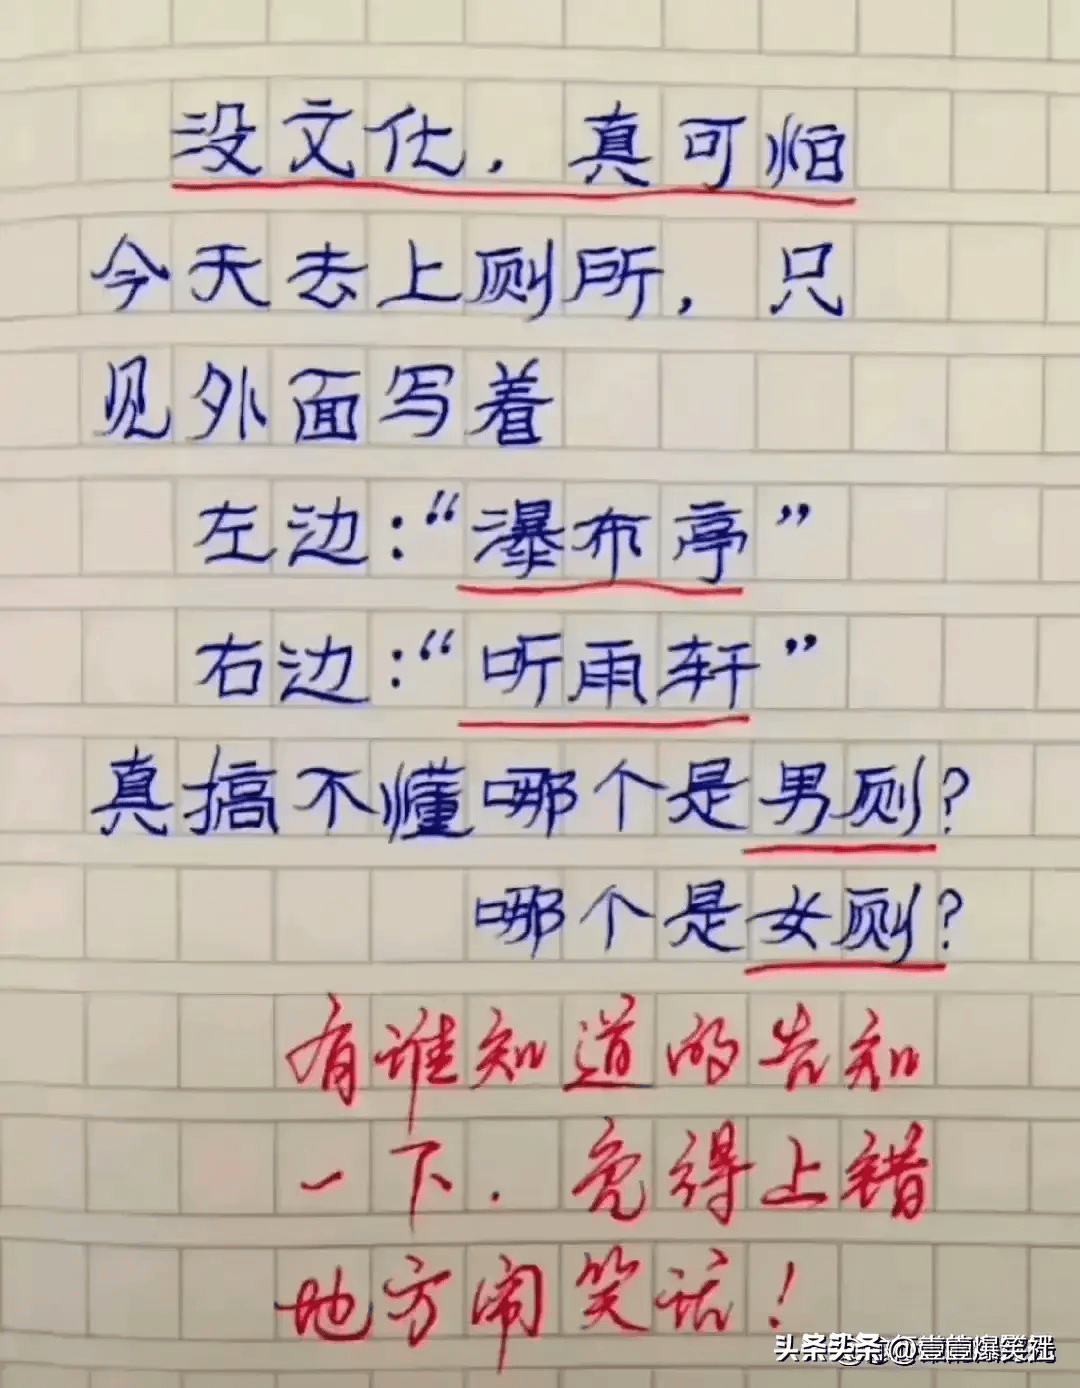 没文化，真可怕
今天去上厕所，只
见外面写着
左边：“瀑布亭”
右边：“听雨轩”
真搞不懂哪个是男厕？
哪个是女厕？
有谁知道的告知
一下．免得上错
地方闹笑话！
头条 @壹苩爆笑社